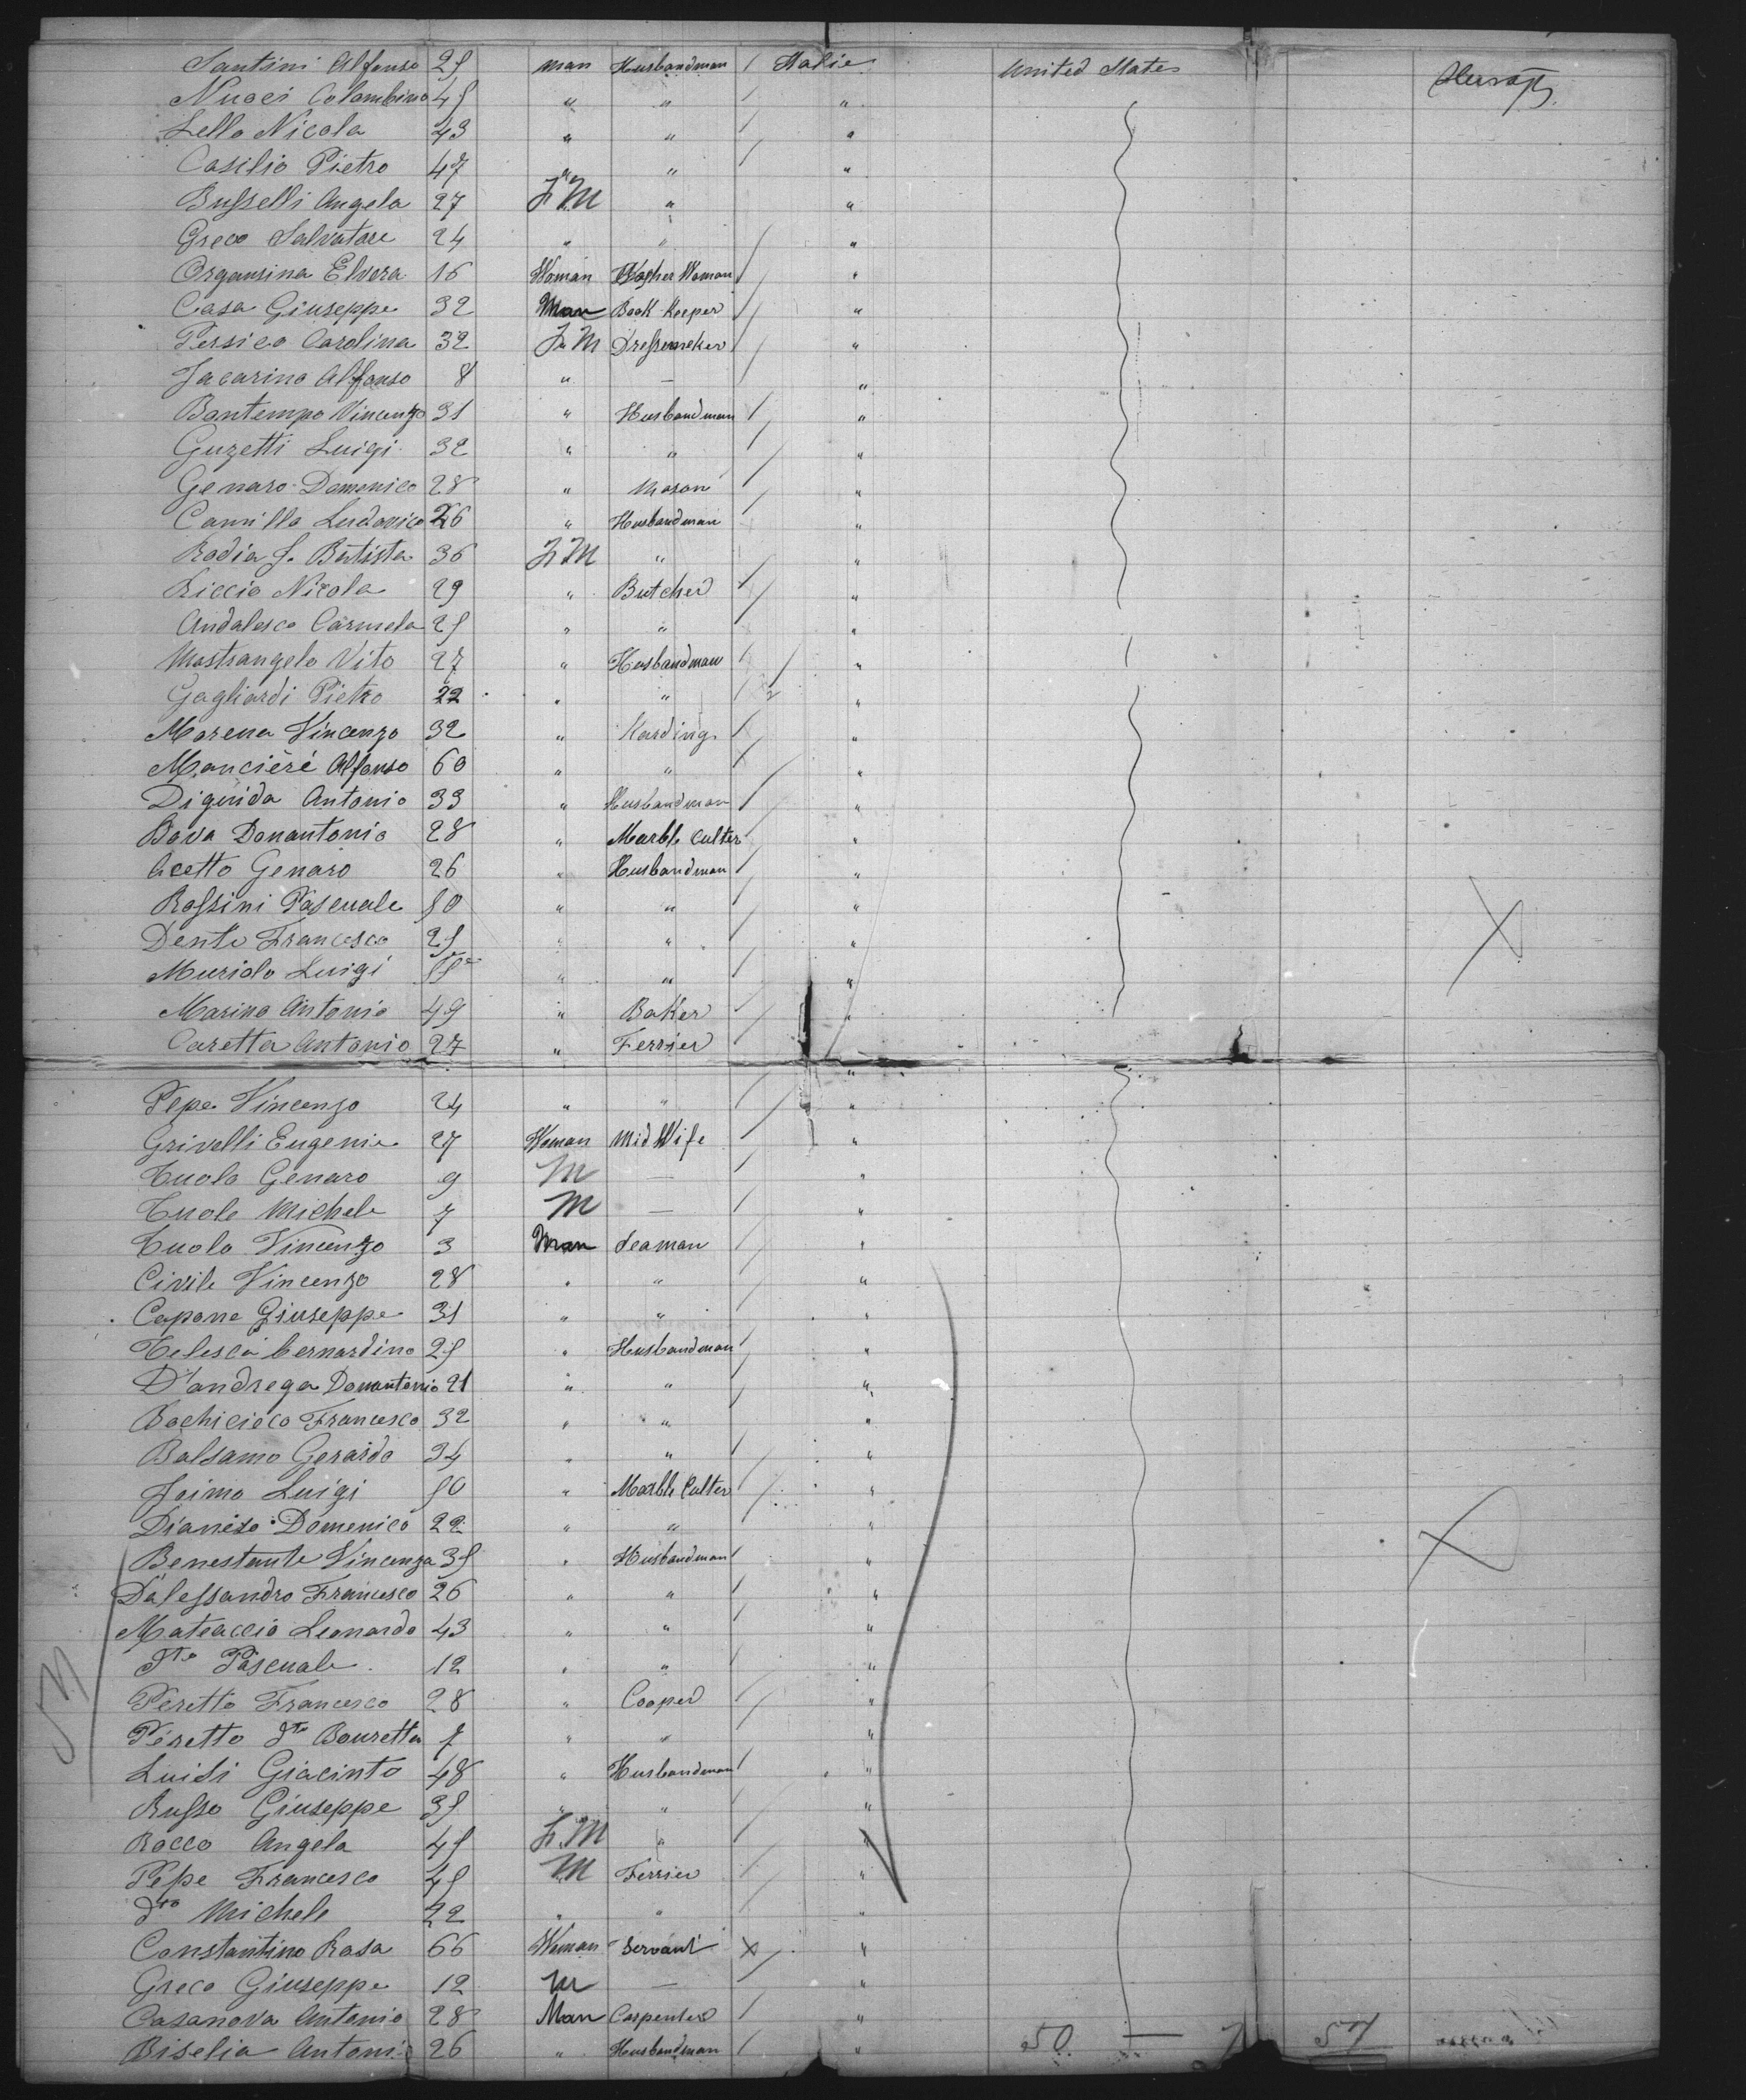 Santini Alfonso 25 man Husbandman / Italie United States
Nucci Colombino 45 " " / "
Lello Nicola 43 " " / "
Casilio Pietro 47 " " / "
Busselli Angela 27 F M " "
Greco Salvatore 24 " " / "
Organsina Elvera 16 Woman Washer Woman / "
Casa Giuseppe 32 Man Book-Keeper / "
Persico Carolina 32 F M Dressmeker / "
Jacarino Alfonso 8 " — / "
Bontempo Vincenzo 31 " Husbandman / "
Guzetti Luigi 32 " " / "
Genaro Domenico 28 " Mason / "
Camillo Ludovico 26 " Husbandman / "
Radia G. Batista 36 F M " / "
Riccio Nicola 29 " Butcher / "
Andalosco Carmela 25 " " / "
Mastrangelo Vito 27 " Husbandman / "
Gagliardi Pietro 22 " " / "
Morena Vincenzo 32 " Harding / "
Mancieré Alfonso 60 " " / "
Diguida Antonio 33 " Husbandman / "
Bova Donantonio 28 " Marble Culter "
Acetto Genaro 26 " Husbandman / "
Rossini Pascuale 50 " " / "
Dento Francesco 25 " " / "
Muriolo Luigi 55 " " / "
Marino Antonio 49 " Baker / "
Caretta Antonio 27 " Ferrier / "
Pepe Vincenzo 24 " " / "
Grivelli Eugenia 27 Woman Mid Wife / "
Cuolo Genaro 9 M — / "
Cuolo Michele 7 M — / "
Cuolo Vincenzo 3 Man Seaman / "
Civile Vincenzo 28 " " / "
Capone Giuseppe 31 " " / "
Telesca bernardino 25 " Husbandman / "
D'andrega Donantonio 21 " " / "
Bochicieco Francesco 32 " " "
Balsamo Gerardo 34 " " / "
Jaimo Luigi 50 " Marble Culter / "
Dianeso Domenico 22 " " / "
Benestante Vincenza 35 " Husbandman / "
D'alessandro Francesco 26 " " / "
Mateaccio Leonardo 43 " " / "
Dto Pascuale 12 " " / "
Peretto Francesco 28 " Cooper / "
Peretto dto Bouretta 7 " " / "
Luisi Giacinto 48 " Husbandman / "
Russo Giuseppe 35 " " / "
Rocco Angela 45 F. M " / "
Pepe Francesco 45 M Ferrier / "
dto Michele 22 " " / "
Constantino Rosa 66 Woman Servant X "
Greco Giuseppe 12 M — / "
Casanova Antonio 28 Man Carpenter / "
Biselia Antoni 26 " Husbandman / " 50 — 7 57